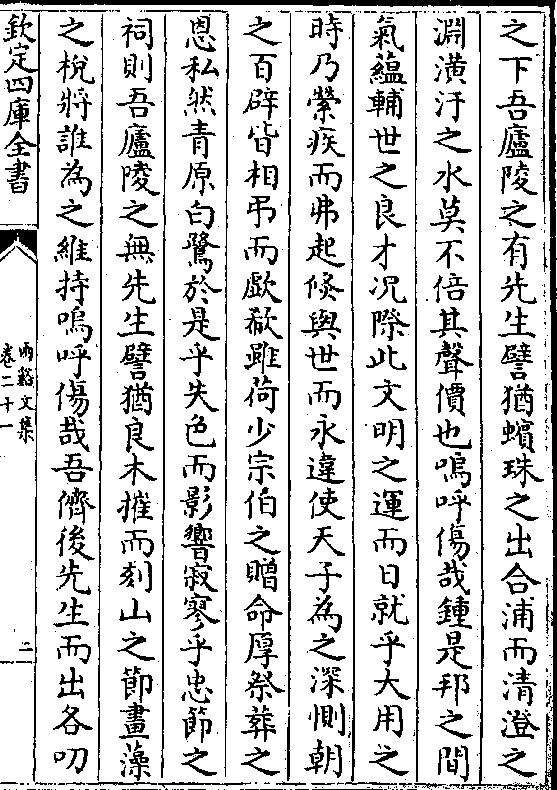 之下吾廬陵之有先生譬猶蠙珠之出合浦而清澄之
淵潢汙之水莫不倍其聲價也嗚呼傷哉鍾是邦之間
氣蘊輔世之良才況際此文明之運而日就乎大用之
時乃縈疾而弗起倐與世而永違使天子為之深惻朝
之百辟皆相弔而歔欷雖荷少宗伯之贈命厚祭葬之
恩私然青原白鷺於是乎失色而影響寂寥乎忠節之
祠則吾廬陵之無先生譬猶良木摧而刻山之節畫藻
之梲將誰為之維持嗚呼傷哉吾儕後先生而出各叨
欽定四庫全書
兩谿文集
卷二十一
二